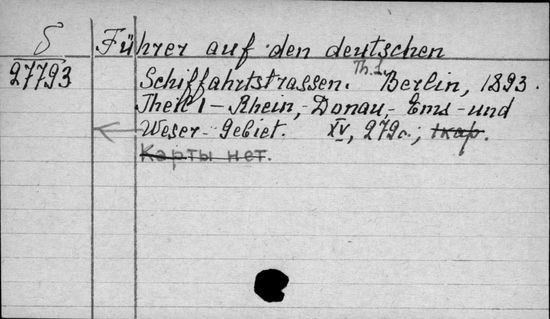 5 Führer auf den deutschen
27793 Schiffahrtstrassen. Th.1. Berlin, 1893.
Theil 1 - Rhein,- Donau,- Ems - und
Weser - Gebiet. XV, 279 с.; 1 кар.
Карты нет.